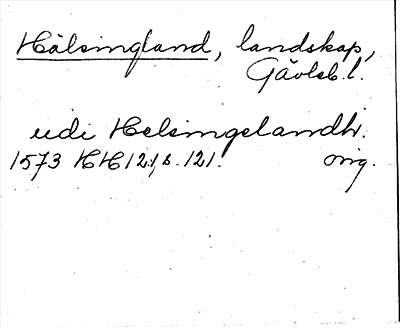 Hälsingland, landskap,
Gävleb. l.
udi Helsingelandh.
1573 HH 12:1, s. 121. orig.